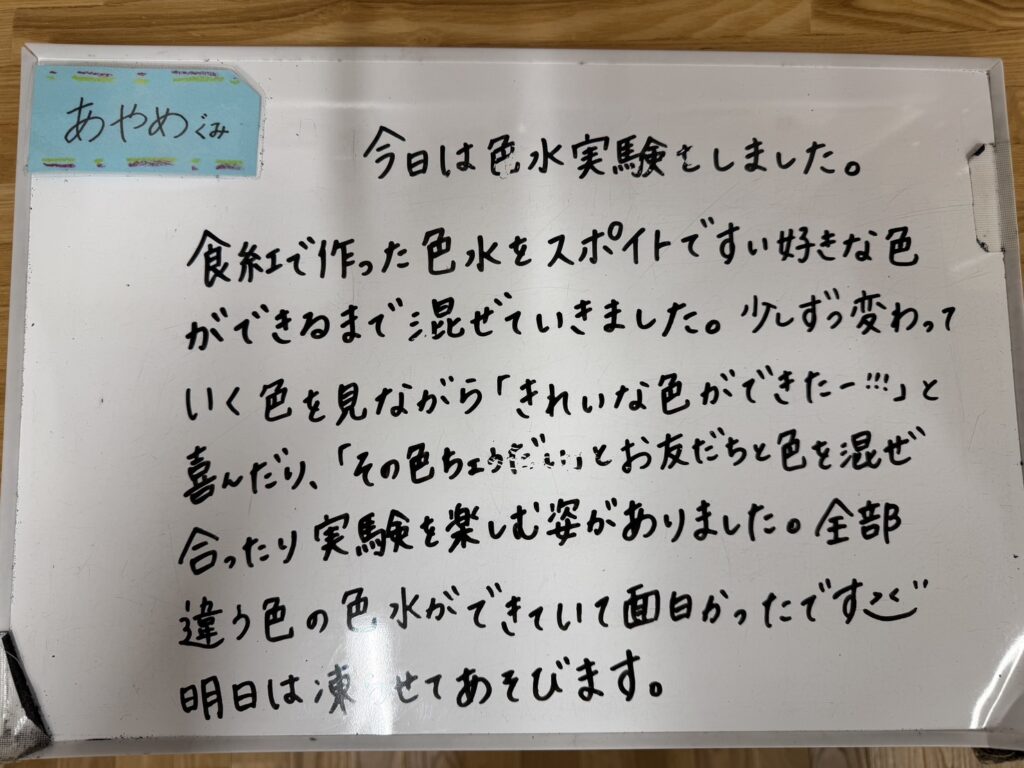 あやめぐみ
今日は色水実験をしました。
食紅で作った色水をスポイトですい好きな色
ができるまで混ぜていきました。少しずつ変わって
いく色を見ながら「きれいな色ができたー!!!」と
喜んだり、「その色ちょうだい」とお友だちと色を混ぜ
合ったり実験を楽しむ姿がありました。全部
違う色の色水ができていて面白かったです
明日は凍らせてあそびます。